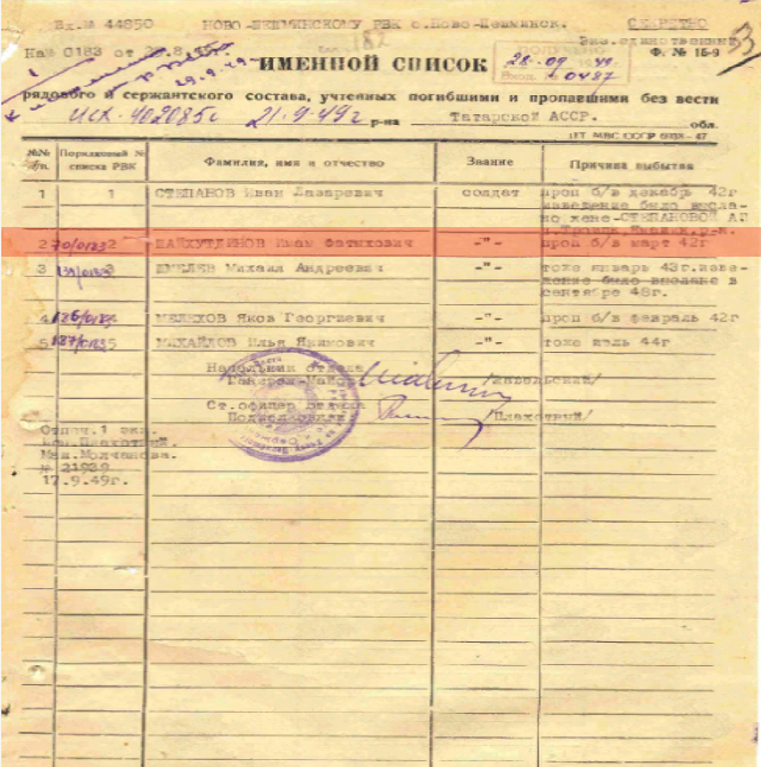 Вх.№ 44850 НОВО-ШЕШМИНСКОМУ РВК с.Ново-Шешминск. СЕКРЕТНО
182
На№ 0183 от 8.49г. Экз.единственный
29.9.49 ПОЛУЧЕНО Ф. № ІБ-9
ИМЕННОЙ СПИСОК 28 09 1949
Вход. № 0487
рядового и сержантского состава, учтенных погибшими и пропавшими без вести
Исх. 402085с 21.9.49г р-на Татарской АССР. обл.
№№ п. Порядковый № списка РВК Фамилия, имя и отчество Звание Причина выбытия
1 1 СТЕПАНОВ Иван Лазаревич солдат проп б/в декабрь 42г
извещение было высла-
но жене-СТЕПАНОВОЙ АП
2 70/0183 2 ШАЙХУТДИНОВ Имам Фатыхович -"- проп б/в март 42г
3 139/0183 3 ШМЕЛЕВ Михаил Андреевич -"- тоже январь 43г.изве-
щение было выслано в
сентябре 48г.
4 186/0183 4 МЕЛЕХОВ Яков Георгиевич -"- проп б/в февраль 42г
5 187/0183 5 МИХАЙЛОВ Илья Якимович -"- тоже июль 44г
Начальник отдела
Генерал-Майор /Шавельский/
Ст.офицер отдела
Подполковник /Плахотный/
Отпеч.1 экз.
Исп.Плахотный.
Маш.Молчанова.
№ 21939
17.9.49г.